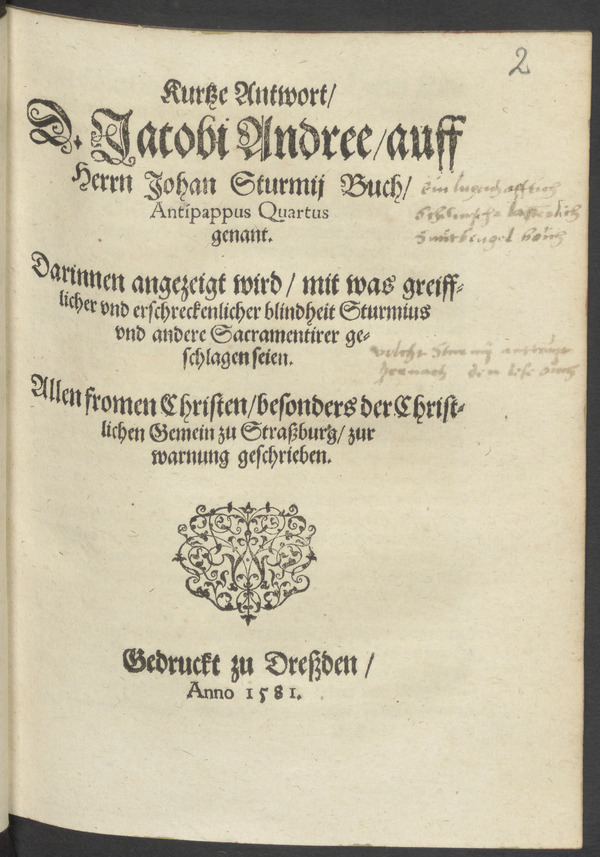 2
Kurtze Antwort/
D. Jacobi Andree/auff
Herrn Johan Sturmij Buch/
Antipappus Quartus
genant.
Darinnen angezeigt wird / mit was greiff-
licher vnd erschreckenlicher blindheit Sturmius
vnd andere Sacramentirer ge-
schlagen seien.
Allen fromen Christen/besonders der Christ-
lichen Gemein zu Straßburg/ zur
warnung geschrieben.
Gedruckt zu Dreßden /
Anno 1581.